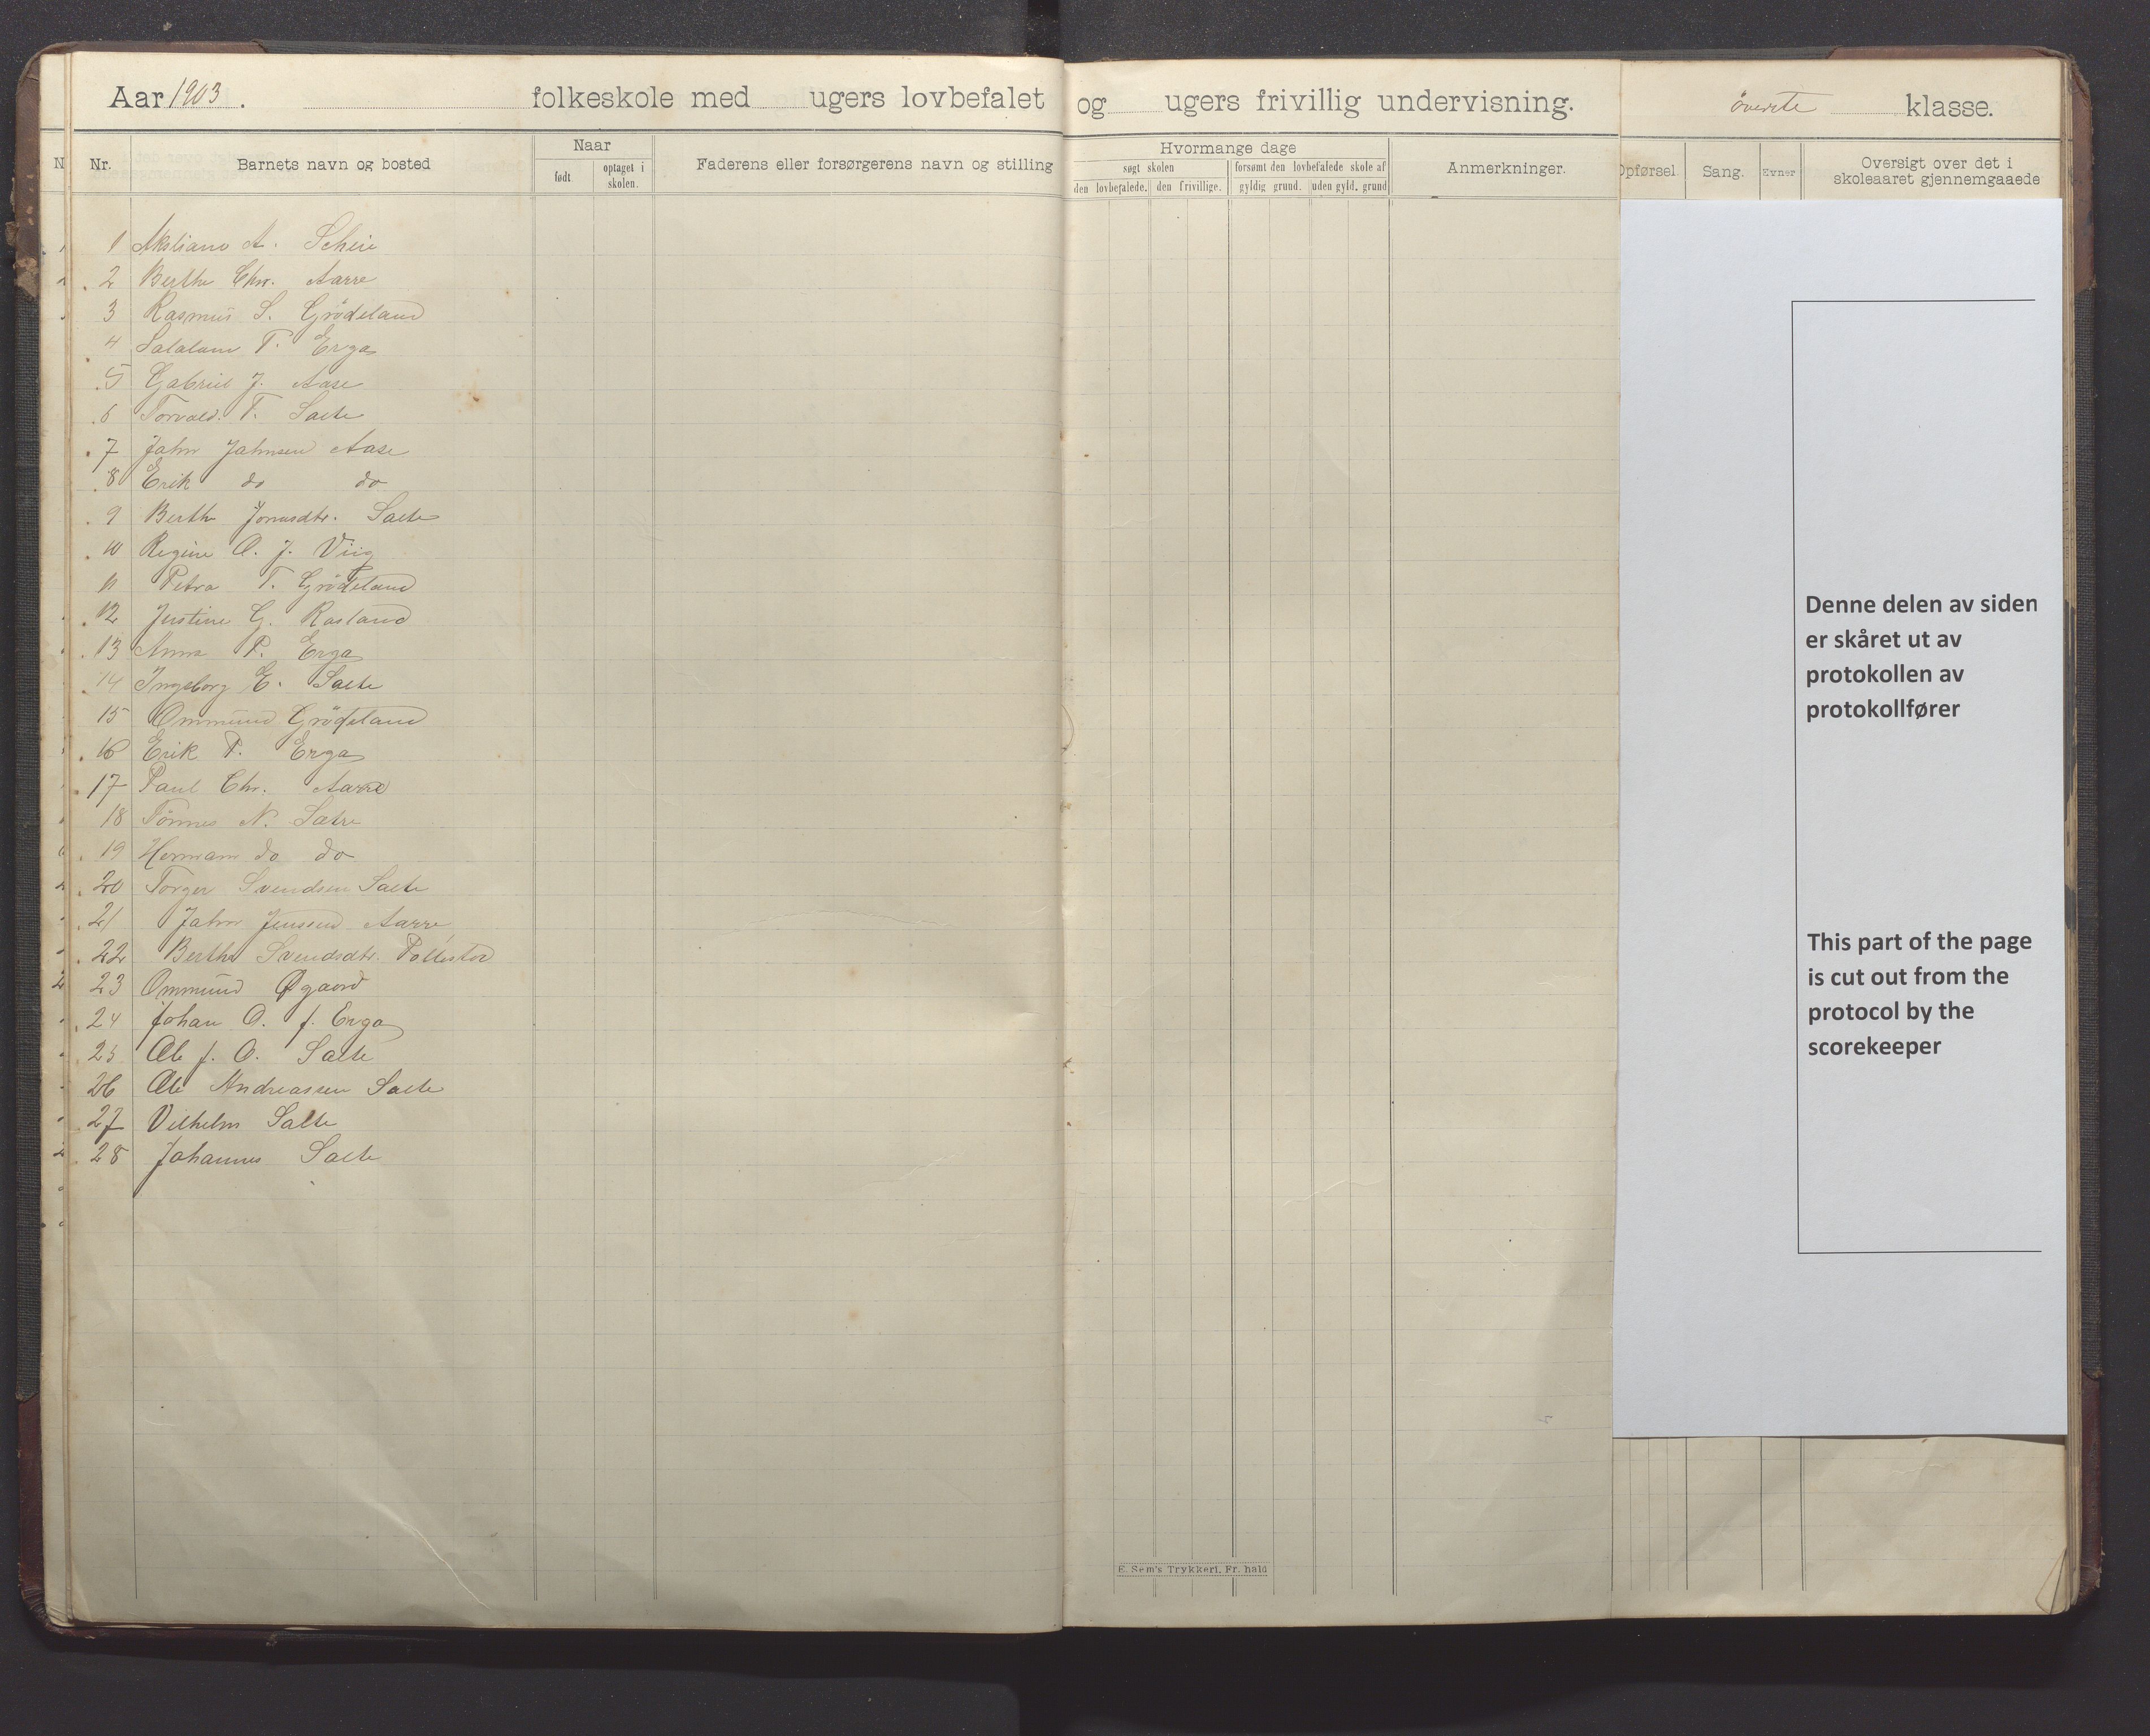 Aar 1903. folkeskole med ugers lovbefalet og ugers frivillig undervisning. överste klasse.
Nr. Barnets navn og bosted
Naar
født optaget i skolen.
Faderens eller forsørgerens navn og stilling
Hvormange dage
søgt skolen
den lovbefalede. den frivillige.
forsømt den lovbefalede skole af
gyldig grund. uden gyld. grund
Anmerkninger.
Opførsel. Sang. Evner
Oversigt over det i
skoleaaret gjennemgaaede
1 A. Scheie
2 Berthe Chr. Aarre
3 Rasmus S. Grödeland
4 T. Erga
5 Gabriel J. Aase
6 Torvald. T. Salte
7 Jahn Jahnsen Aase
8 Erik do do
9 Berthe Jonasdtr. Salte
10 Regine O. J. Viig
11 Petra T. Grödeland
12 Justine G. Rosland
13 Anna P. Erga
14 Ingeborg E. Salte
15 Ommund Grödeland
16 Erik P. Erga
17 Paul Chr. Aarre
18 Tönnes N. Sætre
19 Herman do do
20 Torger Svendsen Salte
21 Jahn Jensen Aarre
22 Berthe Svendsdtr. Pollestad
23 Ommund Øgaard
24 Johan O. J. Erga
25 Ole J. O. Salte
26 Ole Andreassen Salte
27 Vilhelm Salte
28 Johannes Salte
E. Sem's Trykkeri, Fr. hald
Denne delen av siden
er skåret ut av
protokollen av
protokollfører
This part of the page
is cut out from the
protocol by the
scorekeeper